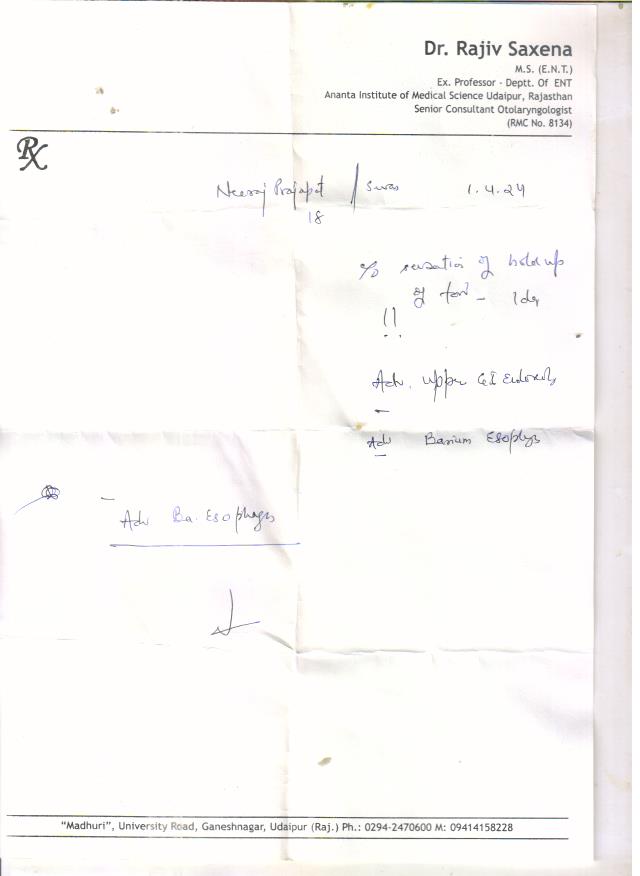 Dr. Rajiv Saxena
M.S. (E.N.T.)
Ex. Professor - Deptt. Of ENT
Ananta Institute of Medical Science Udaipur, Rajasthan
Senior Consultant Otolaryngologist
(RMC No. 8134)
Rx
Neeraj Prajapat / 1.4.24
18
c/o sensation of hold up
of
!!
Adv. Upper GI
Adv Barium
Adv Ba.
"Madhuri", University Road, Ganeshnagar, Udaipur (Raj.) Ph.: 0294-2470600 M: 09414158228